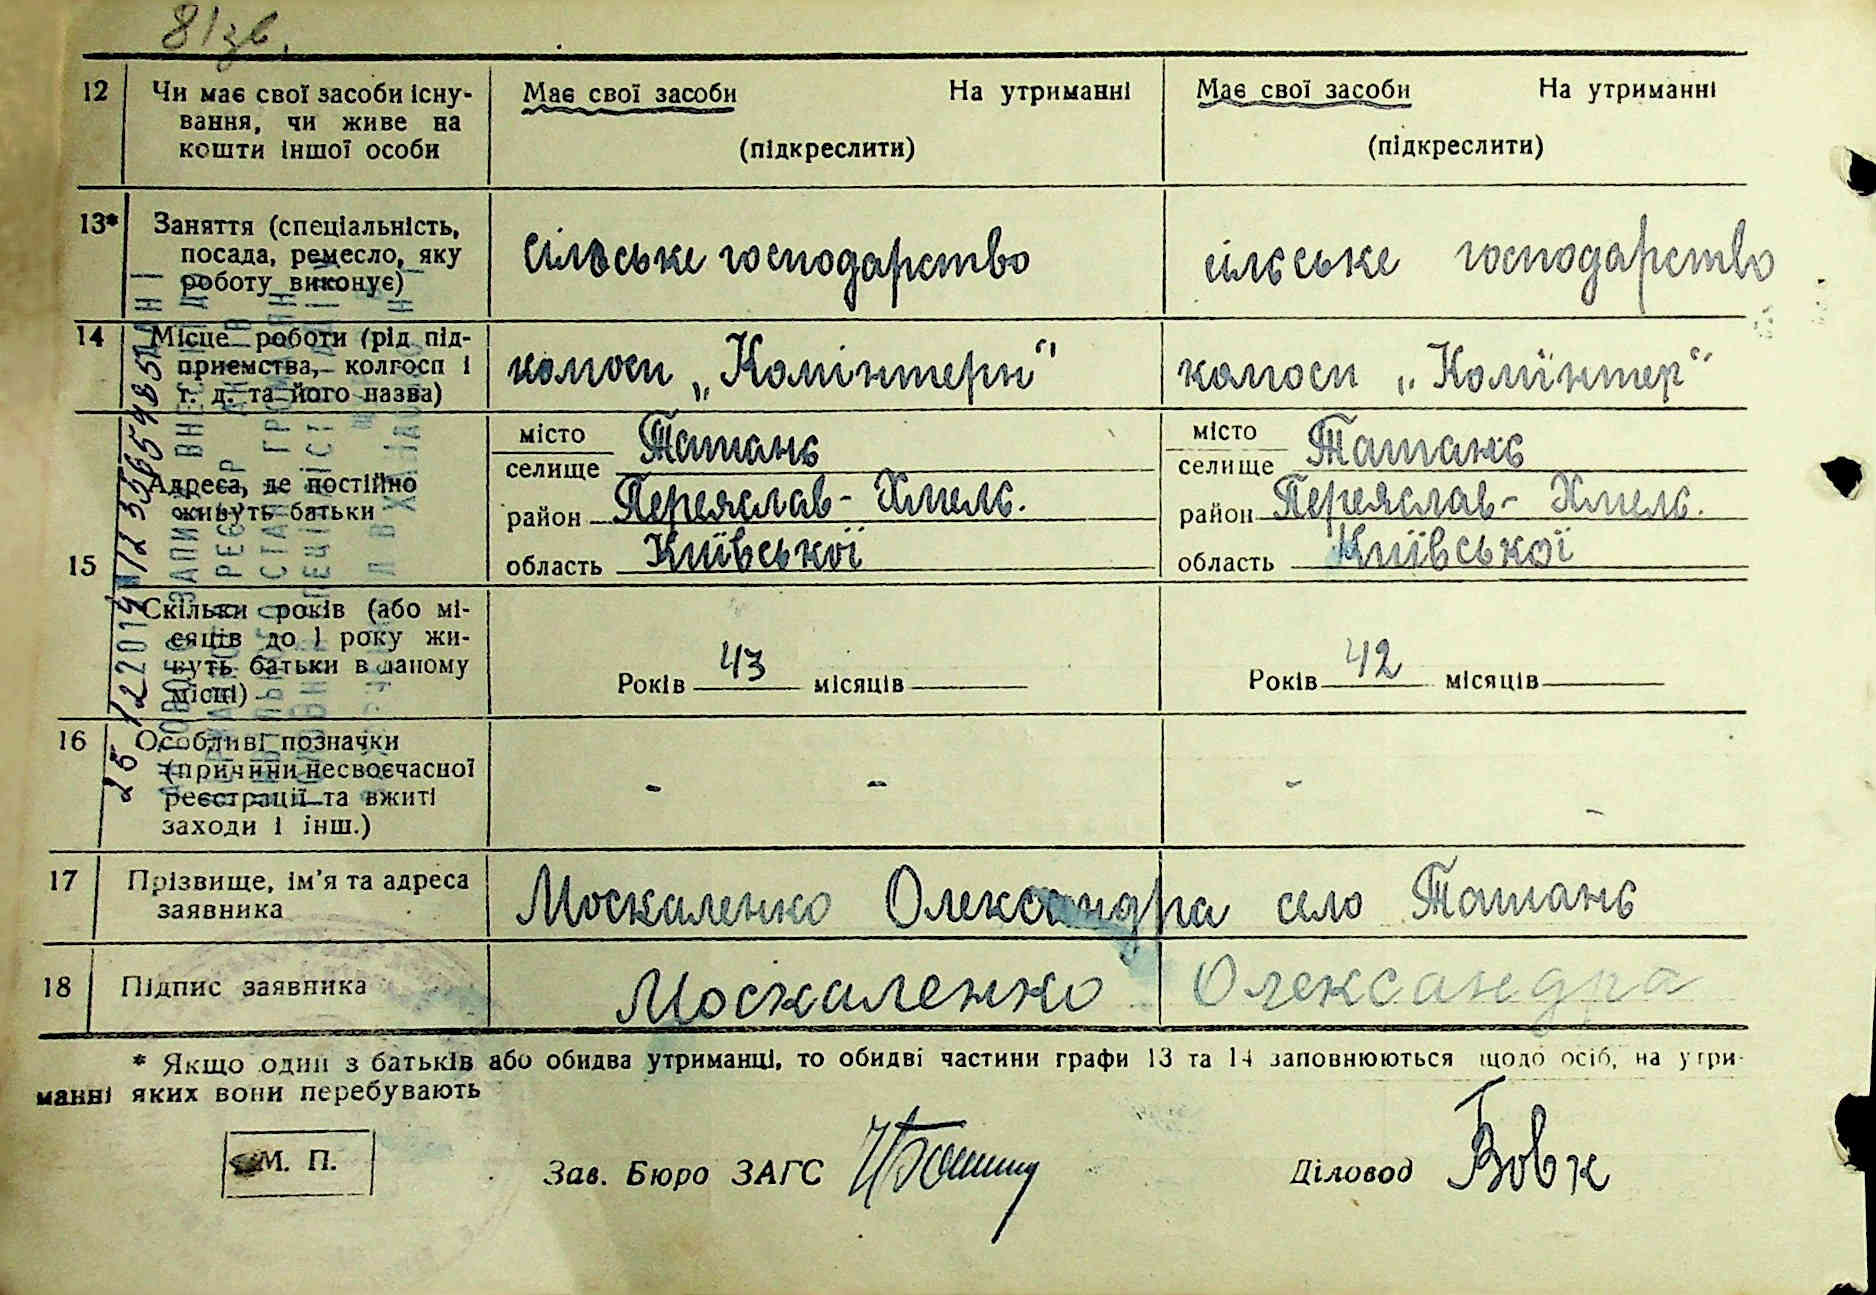 81 зв.
12 Чи має свої засоби існу-
вання, чи живе на
кошти іншої особи
Має свої засоби На утриманні
(підкреслити)
Має свої засоби На утриманні
(підкреслити)
13* Заняття (спеціальність,
посада, ремесло, яку
роботу виконує)
сільське господарство
сільське господарство
14 Місце роботи (рід під-
приємства, колгосп і
т. д. та його назва)
колгосп „Комінтерн"
колгосп „Комінтер"
15 Адреса, де постійно
живуть батьки
місто Ташань
селище
район Переяслав-Хмель.
область Київської
місто Ташань
селище
район Переяслав-Хмель.
область Київської
Скільки років (або мі-
сяців до 1 року жи-
вуть батьки в даному
місці)
Років 43 місяців
Років 42 місяців
16 Особливі позначки
(причини несвоєчасної
реєстрації та вжиті
заходи і інш.)
- -
- -
17 Прізвище, ім'я та адреса
заявника
Москаленко Олександра село Ташань
18 Підпис заявника
Москаленко Олександра
* Якщо один з батьків або обидва утриманці, то обидві частини графи 13 та 14 заповнюються щодо осіб, на утри-
манні яких вони перебувають
М. П.
Зав. Бюро ЗАГС
Діловод Вовк